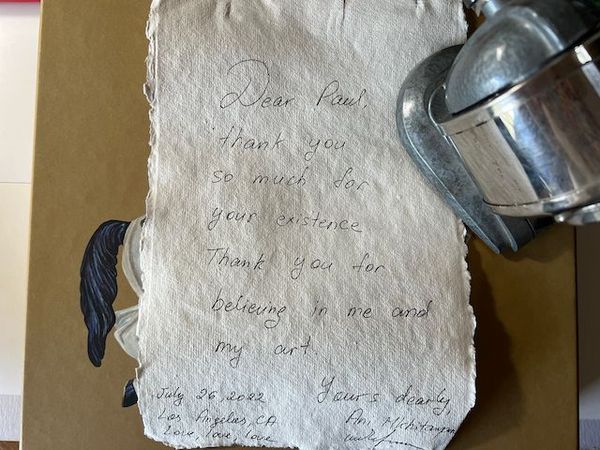 Dear Paul,
thank you
so much for
your existence
Thank you for
believing in me and
my art.
July 26, 2022
Los Angeles, CA
Love, love, love
Yours dearly,
Ani